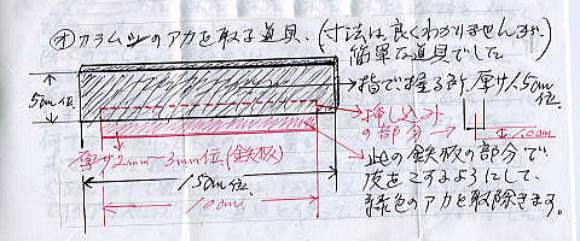 オ カラムシのアカを取る道具.(寸法は良くわかりませんが、
簡単な道具でした
5cm位.
指で握る所.厚サ1.5cm位.
挿し込み
の部分→
1.0cm
厚サ2mm〜3mm位.(鉄板)
此の鉄板の部分で
皮をこするようにして、
緑色のアカを取除きます.
15cm位.
10cm.